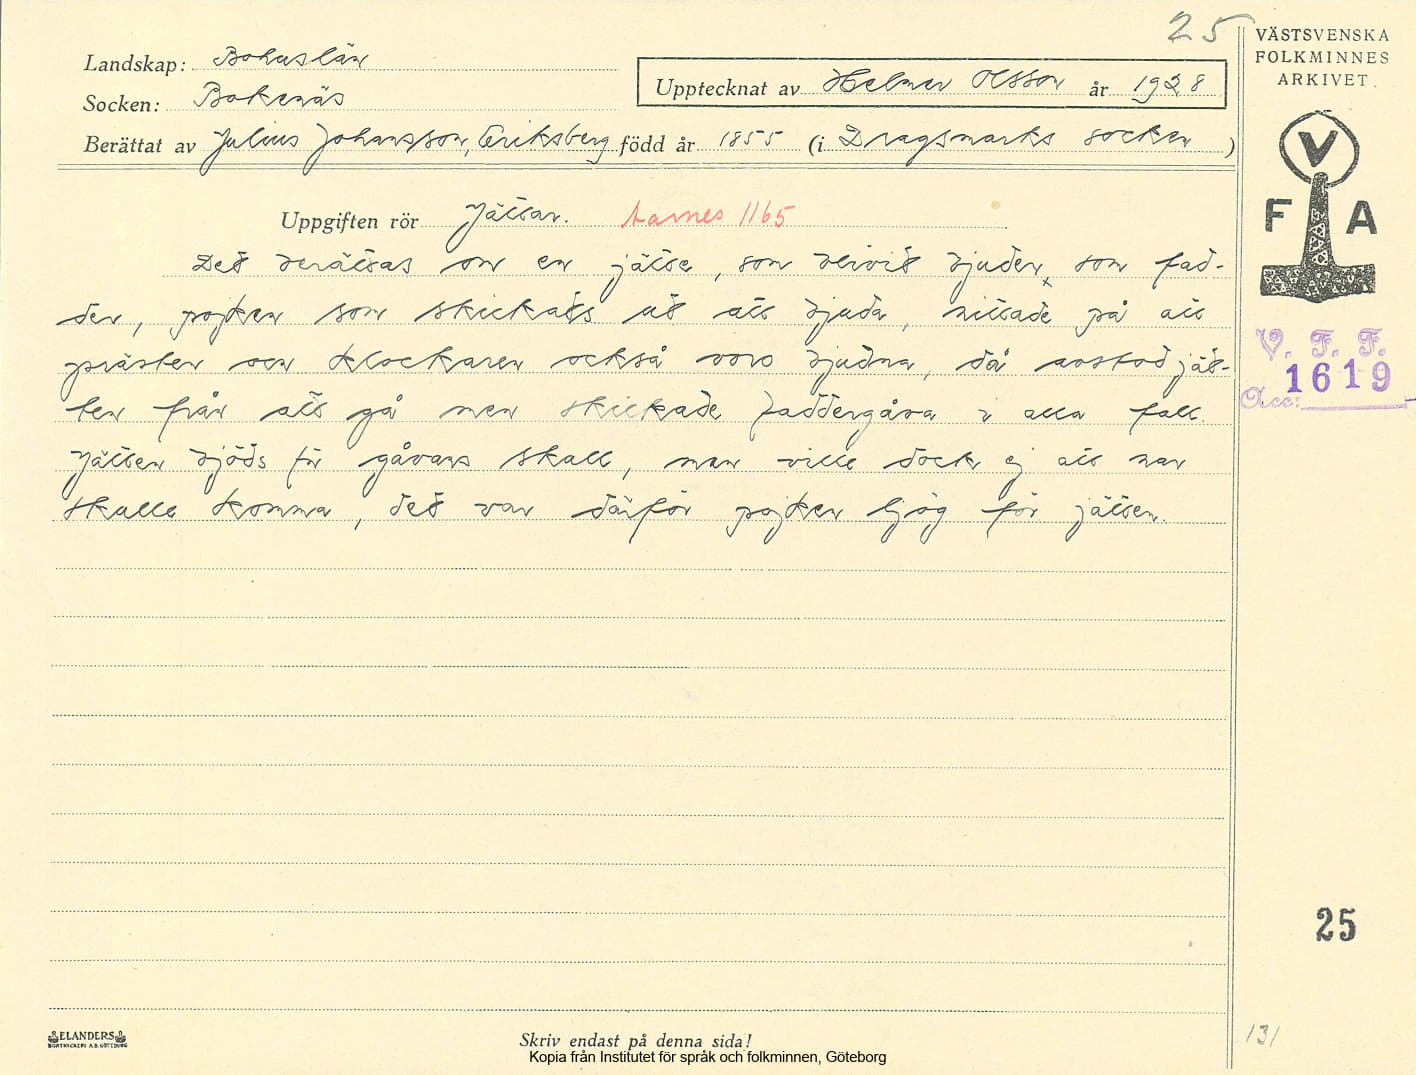 25
VÄSTSVENSKA
FOLKMINNES
ARKIVET.
Landskap: Bohuslän
Upptecknat av Helmer Olsson år 1928
Socken: Bokenäs
Berättat av Julius Johansson, Eriksberg född år 1855 (i Dragsmarks socken)
V
F A
Uppgiften rör Jättar. Aarnes 1165
Det berättas om en jätte, som blivit bjuden som fad-
der, pojken som skickats ut att bjuda, hittade på att
prästen och klockaren också voro bjudna, då avstod jät-
ten från att gå men skickade faddergåva i alla fall.
Jätten bjöds för gåvans skull, man ville dock ej att han
skulle komma, det var därför pojken ljög för jätten.
V. F. F.
1619
Acc:
25
131
ELANDERS
BOKTRYCKERI A.B. GÖTEBORG
Skriv endast på denna sida!
Kopia från Institutet för språk och folkminnen, Göteborg